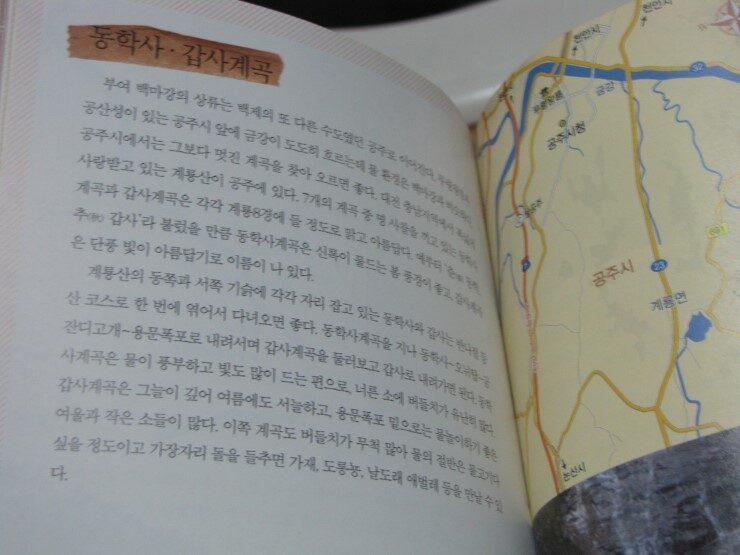 동학사 · 갑사계곡
부여 백마강의 상류는 백제의 또 다른 수도였던 공주로 이어진다. 무령왕릉과
공산성이 있는 공주시 앞에 금강이 도도히 흐르는데 물 환경은 백마강과 비슷하다.
공주시에서는 그보다 멋진 계곡을 찾아 오르면 좋다. 대전 충남지역에서
사랑받고 있는 계룡산이 공주에 있다. 7개의 계곡 중 명 사찰을 끼고 있는 동학사
계곡과 갑사계곡은 각각 계룡8경에 들 정도로 맑고 아름답다. 예부터 '춘 동학,
추(秋) 갑사'라 불렸을 만큼 동학사계곡은 신록이 물드는 봄 풍경이 좋고, 갑사계곡
은 단풍 빛이 아름답기로 이름이 나 있다.
계룡산의 동쪽과 서쪽 기슭에 각각 자리 잡고 있는 동학사와 갑사는 반나절 등
산 코스로 한 번에 엮어서 다녀오면 좋다. 동학사계곡을 지나 동학사~오뉘탑~금
잔디고개~용문폭포로 내려서며 갑사계곡을 둘러보고 갑사로 내려가면 된다. 동학
사계곡은 물이 풍부하고 빛도 많이 드는 편으로, 너른 소에 버들치가 유난히 많다.
갑사계곡은 그늘이 깊어 여름에도 서늘하고, 용문폭포 밑으로는 물놀이하기 좋은
여울과 작은 소들이 많다. 이쪽 계곡도 버들치가 무척 많아 물의 절반은 물고기다
싶을 정도이고 가장자리 돌을 들추면 가재, 도롱뇽, 날도래 애벌레 등을 만날 수 있
다.
천안시
천안시
32
금강
무령왕릉
공주시청
691
공주시
23
계룡면
논산시